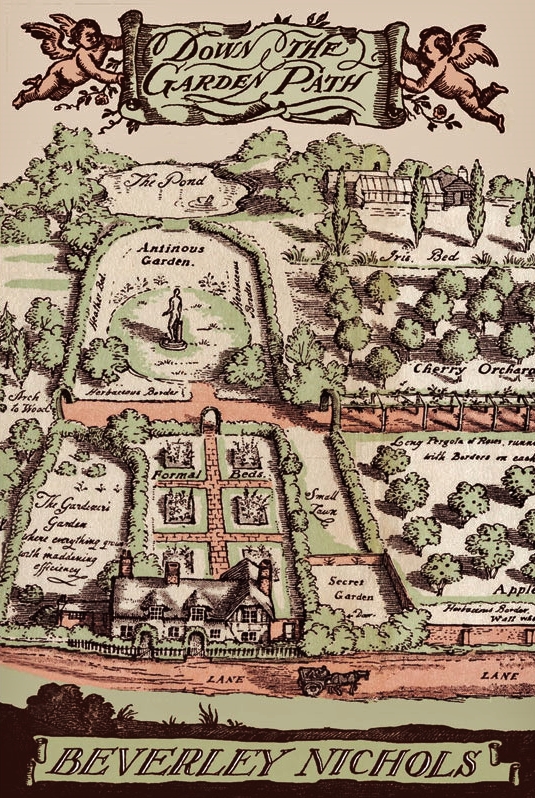 DOWN THE
GARDEN PATH
The Pond
Iris Bed
Antinous
Garden.
Herbaceous Border
Cherry Orchard
Arch
to Wood
Long Pergola of Roses, runn
with Borders on each
Formal Beds.
The Gardener's
Garden
where everything grows
with maddening
efficiency
Small
Lawn
Secret
Garden
Door
Apple
Herbaceous Border
Wall
LANE
LANE
BEVERLEY NICHOLS